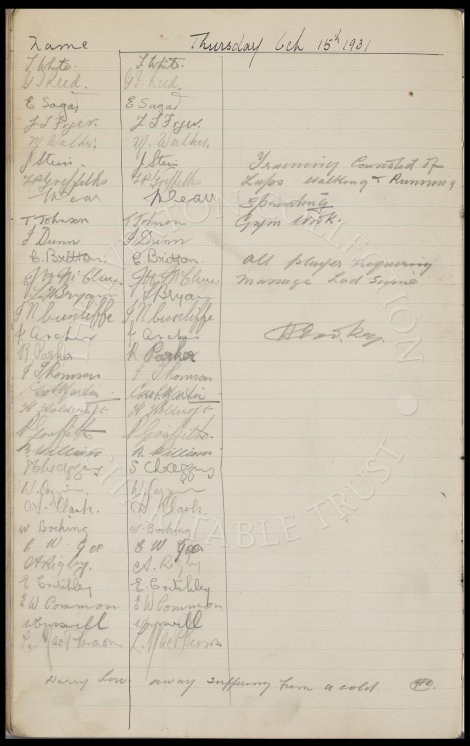 Name Thursday Oct 15th 1931
J. White. J. White.
G I Reed. G I. Reed.
E Sagar E Sagar
J T Fryer. J T Fryer.
W Walker. W. Walker.
J Stein J Stein
T P Griffiths T P Griffiths
Dean Dean
T. Johnson T Johnson
J Dunn J Dunn
C. Britton C. Britton
McClure McClure
Bryan Bryan
J N Cunliffe J N Cunliffe
Archer Archer
R Parker R Parker
J Thomson J Thomson
Geo H Martin Geo H Martin
H Holdcroft H Holdcroft
P Griffiths P Griffiths.
W Williams W. Williams
W. W.
A. Clark. A. Clark.
W Bocking W. Bocking
E W. Gee E W Gee
A Rigby. A. Rigby
E Critchley E. Critchley
E W Common E W Common
L. MacPherson L. MacPherson
Training Consisted of
Laps Walking & Running
Sprinting
Gym Work.
All player requiring
Massage had same
Harry Low away suffering from a cold. HC.
EVERTON COLLECTION
CHARITABLE TRUST